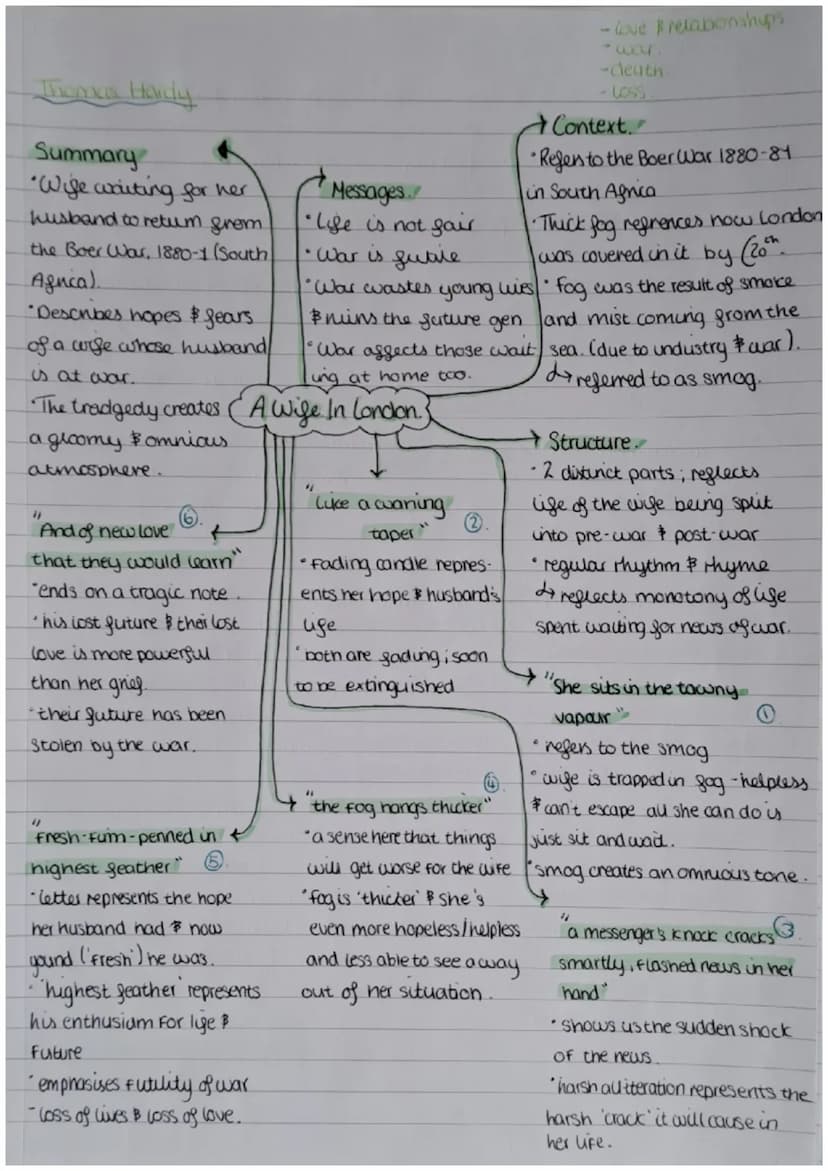 - love & relationships
- war
- death
- loss
Thomas Hardy
Summary
• Wife waiting for her
husband to return from
the Boer War, 1880-1 (South
Africa).
• Describes hopes & fears
of a wife whose husband
is at war.
• The tradgedy creates
a gloomy & omnious
atmosphere.
Messages.
• Life is not fair
• War is futile
• War wastes young lives
& ruins the future gen
• War affects those wait
ing at home too.
Context.
• Refers to the Boer War 1880-81
in South Africa
• Thick fog refrences how London
was covered in it by C20th.
• Fog was the result of smoke
and mist coming from the
sea. (due to industry & war).
↳ referred to as smog.
A Wife In London.
Structure.
• 2 distinct parts; reflects
life of the wife being split
into pre-war & post-war
• regular rhythm & rhyme
↳ reflects monotony of life
spent waiting for news of war.
"She sits in the tawny
vapour" ①
• refers to the smog
• wife is trapped in fog - helpless
& can't escape all she can do is
just sit and wait.
• smog creates an omnious tone.
"Like a waning
taper" ②
• Fading candle repres-
ents her hope & husband's
life
• both are fading; soon
to be extinguished
"a messenger's knock cracks ③
smartly, flashed news in her
hand"
• shows us the sudden shock
of the news.
• harsh alliteration represents the
harsh 'crack' it will cause in
her life.
④
"the fog hangs thicker"
• a sense here that things
will get worse for the wife
• fog is 'thicker' & she's
even more hopeless/helpless
and less able to see a way
out of her situation.
"
Fresh-firm-penned in
highest feather" ⑤
• letter represents the hope
her husband had & how
yound ('fresh') he was.
• 'highest feather' represents
his enthusiam for life &
future
• emphasises futility of war
- loss of lives & loss of love.
"And of new love ⑥
that they would learn"
• ends on a tragic note.
• his lost future & their lost
love is more powerful
than her grief.
• their future has been
stolen by the war.